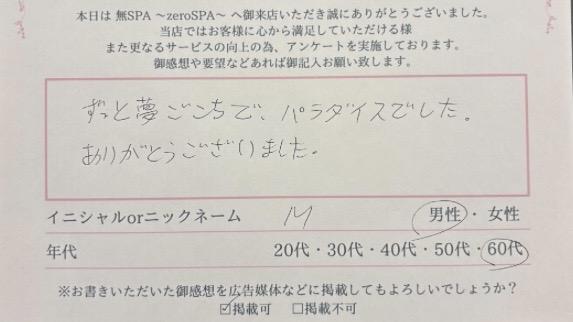 本日は 無SPA ～zeroSPA～ へ御来店いただき誠にありがとうございました。
当店ではお客様に心から満足していただける様
また更なるサービスの向上の為、アンケートを実施しております。
御感想や要望などあれば御記入お願い致します。
ずっと夢ごこちで、パラダイスでした。
ありがとうございました。
イニシャルorニックネーム M 男性・女性
年代 20代・30代・40代・50代・60代
※お書きいただいた御感想を広告媒体などに掲載してもよろしいでしょうか？
☑掲載可 ☐掲載不可